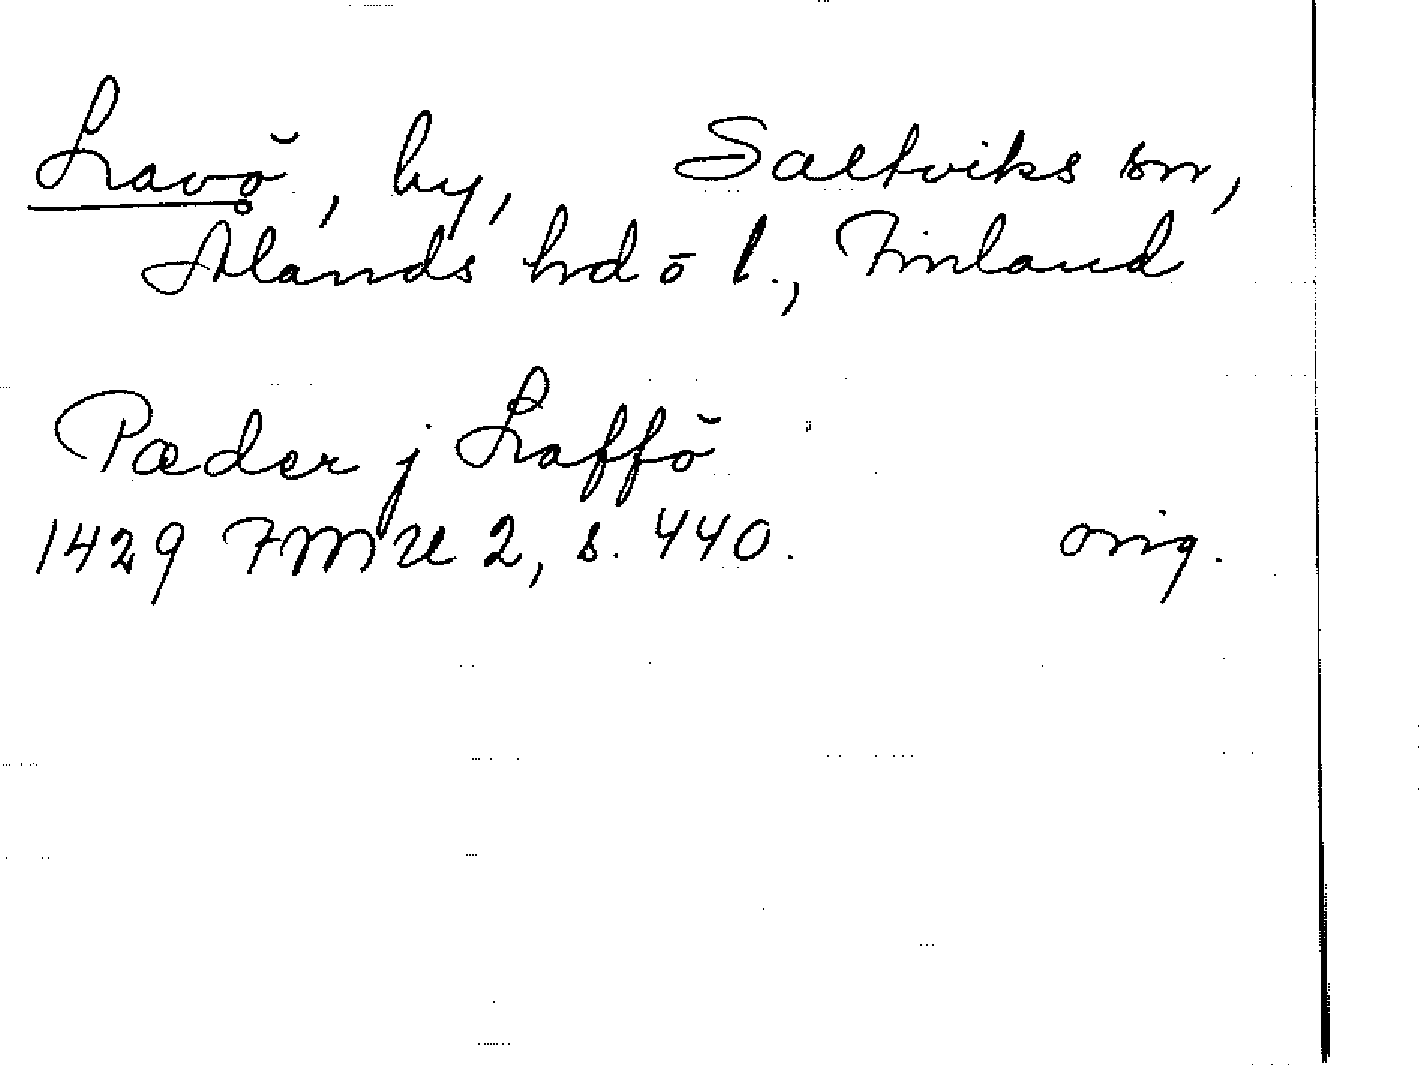 Lavö, by, Saltviks sn,
Ålands hd o l., Finland
Pæder j Laffö
1429 FMU 2, s. 440. orig.